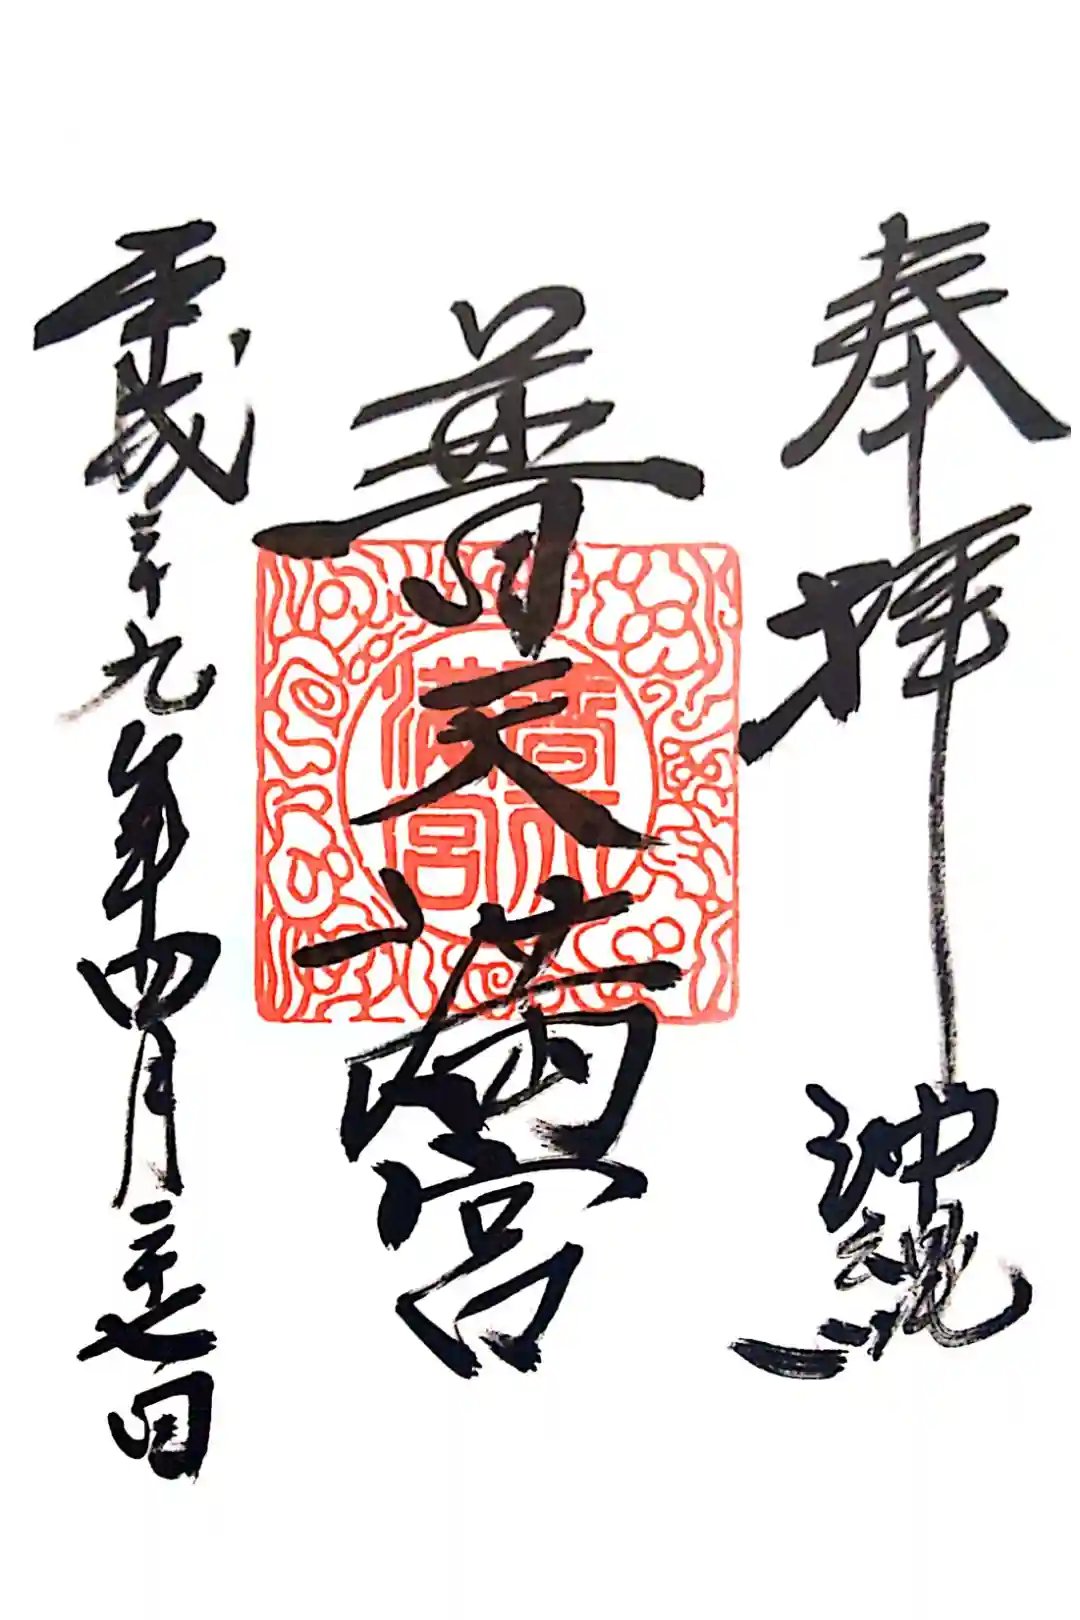 奉拝 沖縄
普天満宮
平成二十九年四月二十七日
普天
満宮